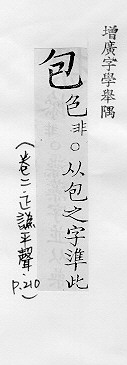 增廣字學舉隅
包色非。从包之字準此
(卷二正譌平聲
P.210)